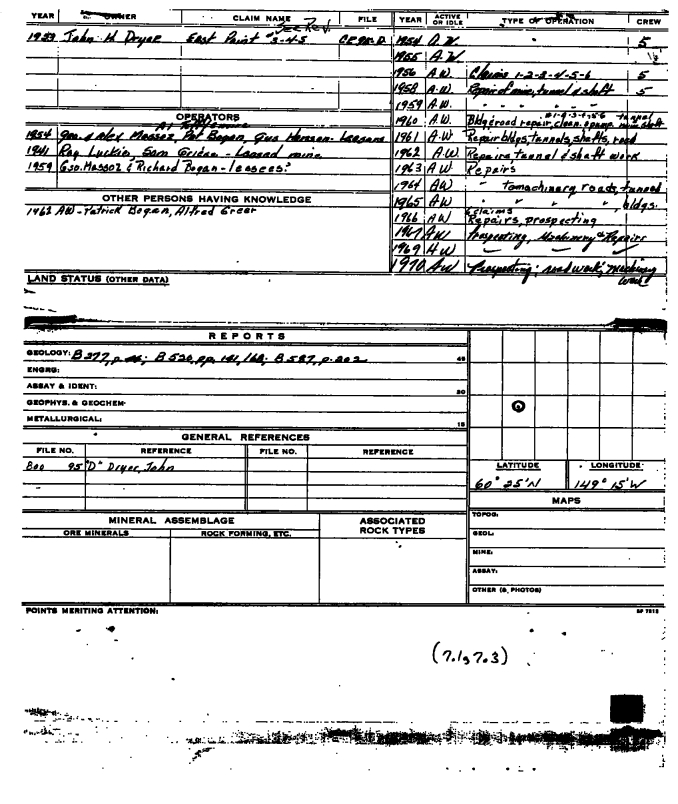 YEAR OWNER CLAIM NAME FILE YEAR ACTIVE OR IDLE TYPE OF OPERATION CREW
See Rev.
1933 John H Dryer East Point #3-4-5 1954 A.W. " 5
1955 A.W.
1956 A.W. Claims 1-2-3-4-5-6 5
1958 A.W. Repair of mine, tunnel & shaft 5
1959 A.W. " " " "
OPERATORS
1960 A.W. Bldg & road repair, clean
1954 Geo. & Alex Massoz, Pat Bogan, Gus Hansen - Leasans
1961 A.W Repair bldgs, tunnels, shafts, road
1941 Ray Luckie, Sam Gridan - Leased mine
1962 A.W Repairs, tunnel & shaft work
1959 Geo. Massoz & Richard Bogan - lessees
1963 A W Repairs
1964 AW " to machinery roads, tunnel
OTHER PERSONS HAVING KNOWLEDGE
1965 AW " " " bldgs.
1962 AW - Patrick Bogan, Alfred Greer
6 claims
1966 AW Repairs, prospecting
1967 AW Prospecting, Machinery & Repairs
1969 AW
1970 AW Prospecting; road work; machinery work
LAND STATUS (OTHER DATA)
REPORTS
GEOLOGY: B 277, p. B 520, pp. 141, 168; B 587, p. 202 45
ENGRG:
ASSAY & IDENT: 30
GEOPHYS. & GEOCHEM-
METALLURGICAL: 15
GENERAL REFERENCES
FILE NO. REFERENCE FILE NO. REFERENCE
Boo 95 "D" Dryer, John
LATITUDE LONGITUDE
60° 25'N 149° 15'W
MAPS
TOPOG:
MINERAL ASSEMBLAGE ASSOCIATED ROCK TYPES
ORE MINERALS ROCK FORMING, ETC.
GEOL:
MINE:
ASSAY:
OTHER (& PHOTOS)
POINTS MERITING ATTENTION:
(7.1, 7.3)